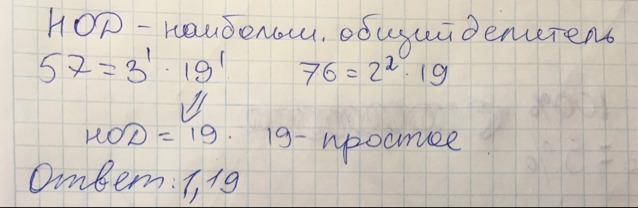 НОД - наибольш. общий делитель
57 = 3¹ · 19¹ 76 = 2² · 19
⇓
НОД = 19. 19 - простое
Ответ: 1, 19